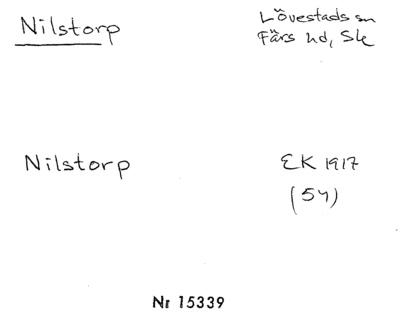 Nilstorp
Lövestads sn
Färs hd, Sk
Nilstorp
EK 1917
(54)
Nr 15339